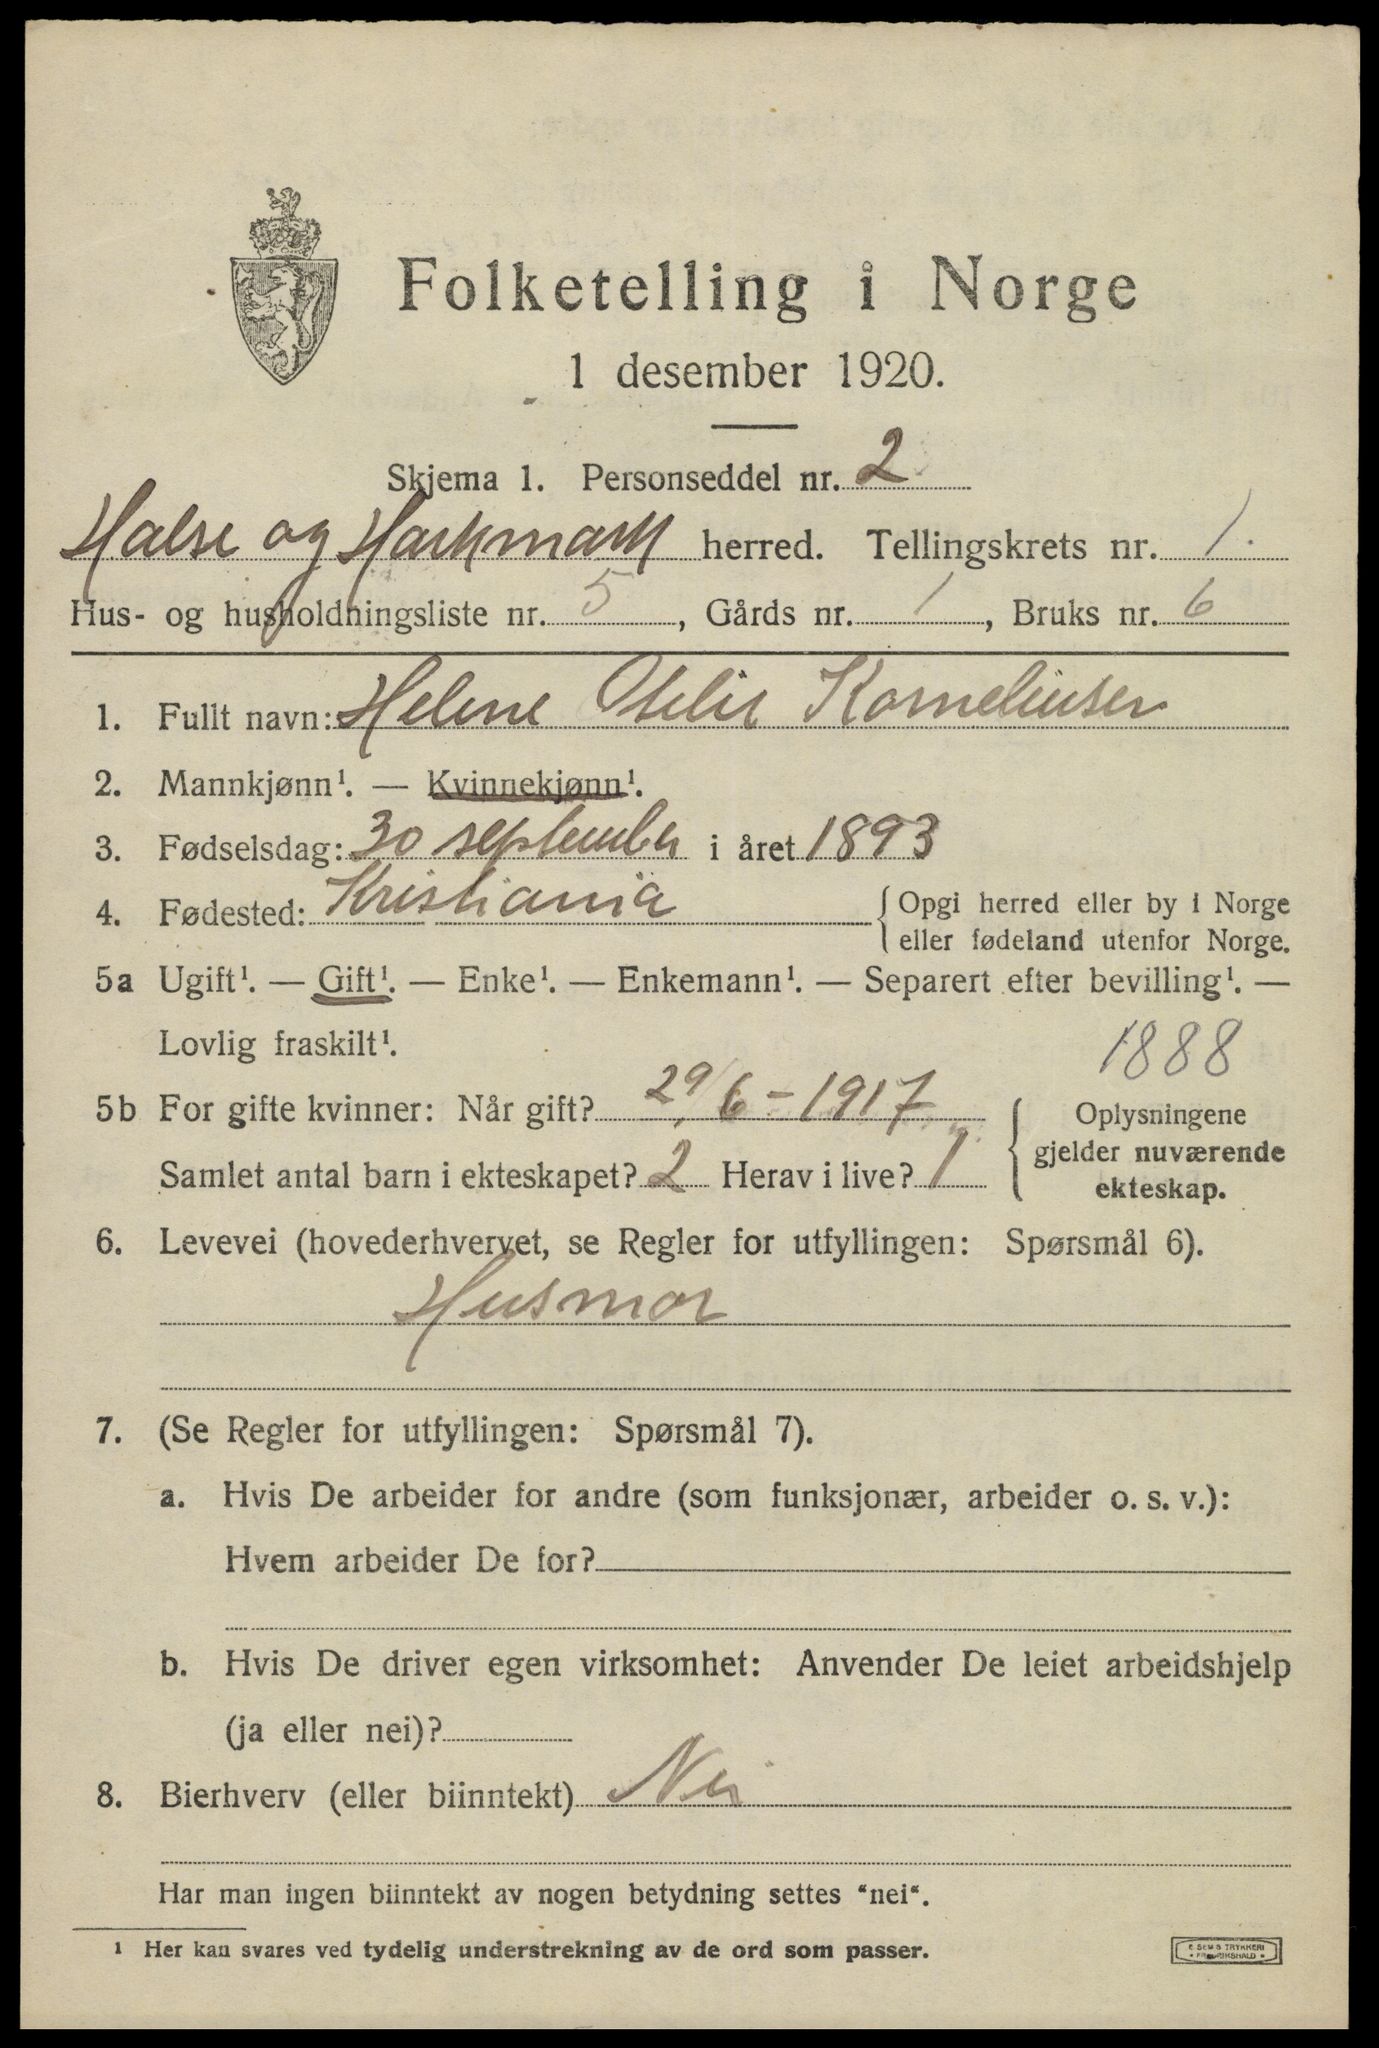 Folketelling i Norge
1 desember 1920.
Skjema 1. Personseddel nr. 2
Halse og Harkmark herred. Tellingskrets nr. 1.
Hus- og husholdningsliste nr. 5, Gårds nr. 1, Bruks nr. 6
1. Fullt navn: Helene Otelie Korneliusen
2. Mannkjønn¹. — Kvinnekjønn¹.
3. Fødselsdag: 30 september i året 1893
4. Fødested: Kristiania { Opgi herred eller by i Norge
eller fødeland utenfor Norge.
5a Ugift¹. — Gift¹. — Enke¹. — Enkemann¹. — Separert efter bevilling¹. —
Lovlig fraskilt¹.
1888
5b For gifte kvinner: Når gift? 29/6-1917
Samlet antal barn i ekteskapet? 2 Herav i live? 1
{ Oplysningene
gjelder nuværende
ekteskap.
6. Levevei (hovederhvervet, se Regler for utfyllingen: Spørsmål 6).
Husmor
7. (Se Regler for utfyllingen: Spørsmål 7).
a. Hvis De arbeider for andre (som funksjonær, arbeider o. s. v.):
Hvem arbeider De for?
b. Hvis De driver egen virksomhet: Anvender De leiet arbeidshjelp
(ja eller nei)?
8. Bierhverv (eller biinntekt) Nei
Har man ingen biinntekt av nogen betydning settes "nei".
¹ Her kan svares ved tydelig understrekning av de ord som passer.
E SEMS TRYKKERI
FREDRIKSHALD